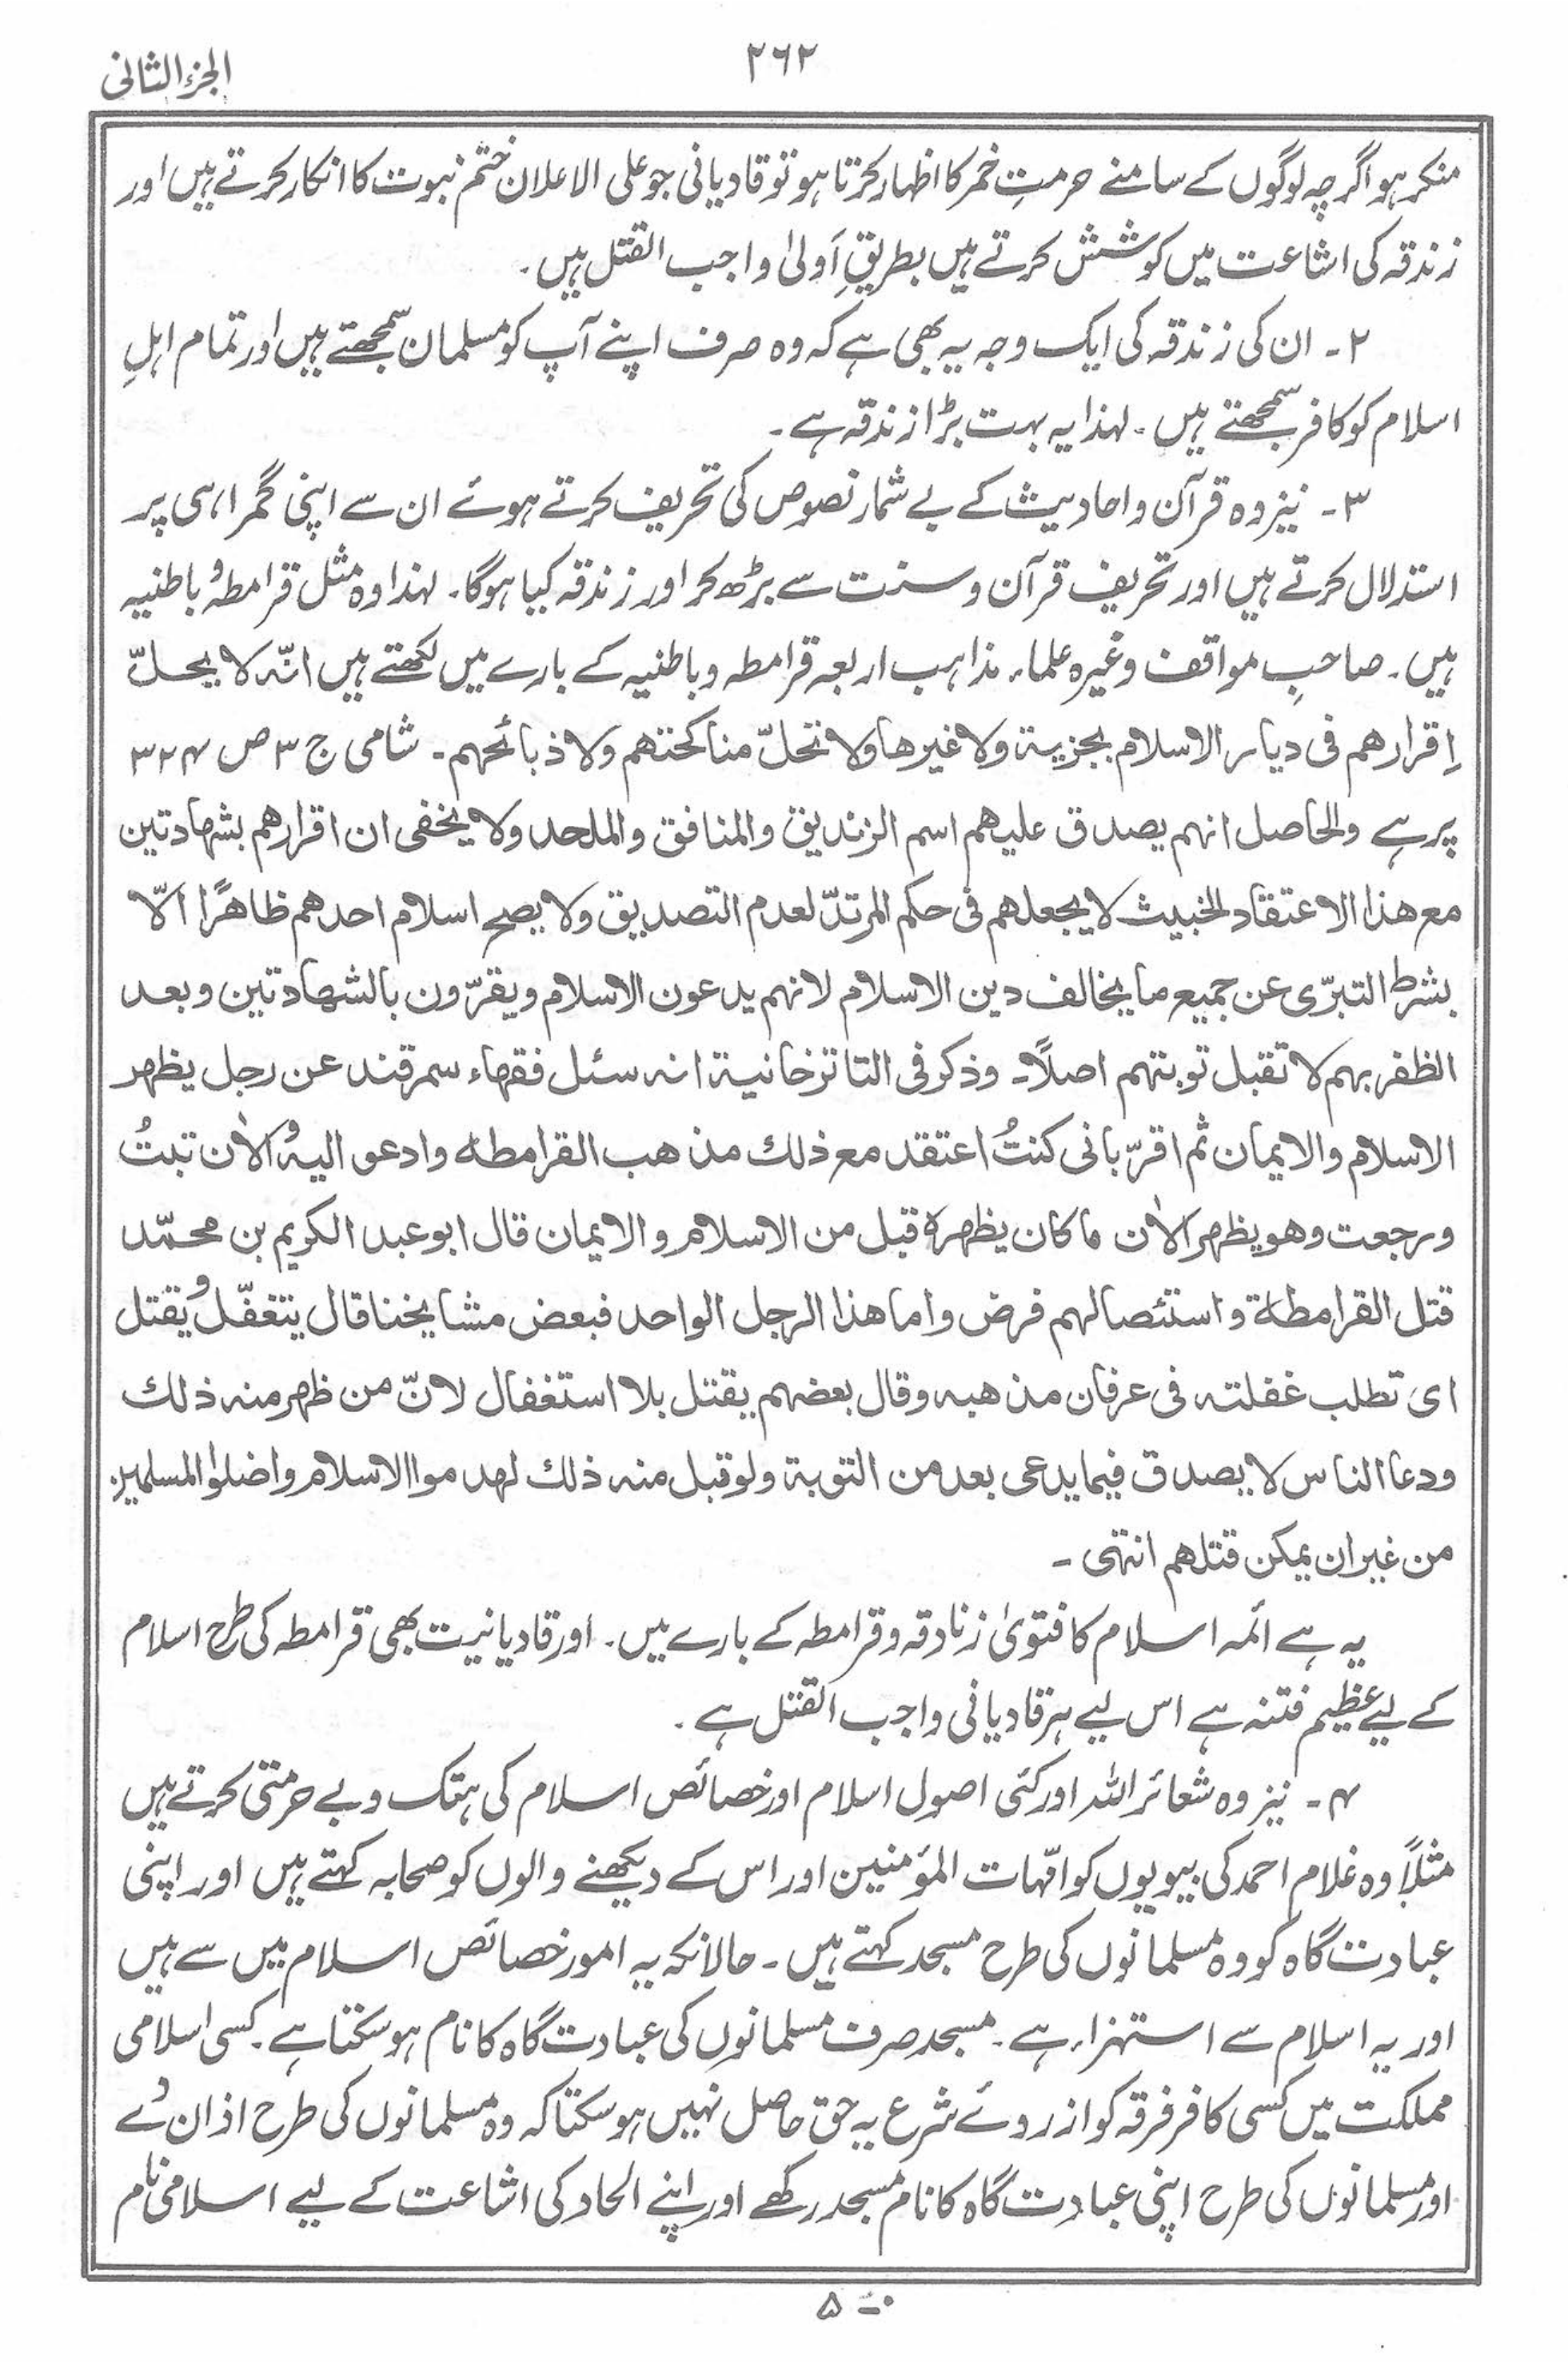 الجزء الثانی
۲۶۲
منکر ہو اگرچہ لوگوں کے سامنے حرمتِ خمر کا اظہار کرتا ہو تو قادیانی جو علی الاعلان ختم نبوت کا انکار کرتے ہیں اور
زندقہ کی اشاعت میں کوشش کرتے ہیں بطریقِ اَولیٰ واجب القتل ہیں۔
۲۔ ان کی زندقہ کی ایک وجہ یہ بھی ہے کہ وہ صرف اپنے آپ کو مسلمان سمجھتے ہیں اور تمام اہلِ
اسلام کو کافر سمجھتے ہیں۔ لہٰذا یہ بہت بڑا زندقہ ہے۔
۳۔ نیز وہ قرآن و احادیث کے بے شمار نصوص کی تحریف کرتے ہوئے ان سے اپنی گمراہی پر
استدلال کرتے ہیں اور تحریف قرآن و سنت سے بڑھ کر اور زندقہ کیا ہوگا۔ لہٰذا وہ مثل قرامطہ و باطنیہ
ہیں۔ صاحبِ مواقف وغیرہ علماء مذاہب اربعہ قرامطہ و باطنیہ کے بارے میں لکھتے ہیں انّہ لا یحلّ
اِقرارهم فی دیار الاسلام بجزیة ولا غیرها ولا تحلّ مناکحتهم ولا ذبائحهم۔ شامی ج ۳ ص ۳۲۴
پر ہے والحاصل انهم یصدق علیهم اسم الزندیق والمنافق والملحد ولا یخفی ان اقرارهم بشهادتین
مع هذا الاعتقاد الخبیث لا یجعلهم فی حکم المرتدّ لعدم التصدیق ولا یصح اسلام احدهم ظاهرًا الّا
بشرط التبرّی عن جمیع ما یخالف دین الاسلام لانهم یدعون الاسلام ویقرّون بالشهادتین وبعد
الظفر بهم لا تقبل توبتهم اصلًا۔ وذکر فی التاترخانیة انه سئل فقهاء سمرقند عن رجل یظهر
الاسلام والایمان ثم اقرّ بانی کنتُ اعتقد مع ذلك مذهب القرامطه وادعو الیه والاٰن تبتُ
ورجعت وهو یظهر الاٰن ما کان یظهره قبل من الاسلام والایمان قال ابو عبد الکریم بن محمّد
قتل القرامطة و استئصالهم فرض واما هذا الرجل الواحد فبعض مشایخنا قال یتغفّل ویقتل
ای تطلب غفلته فی عرفان مذهبه وقال بعضهم یقتل بلا استغفال لانّ من ظهر منه ذلك
ودعا الناس لا یصدق فیما یدعی بعد من التوبة ولو قبل منه ذلك لهدموا الاسلام واضلوا المسلمین
من غیر ان یمکن قتلهم انتهی۔
یہ ہے ائمہ اسلام کا فتویٰ زنادقہ و قرامطہ کے بارے میں۔ اور قادیانیت بھی قرامطہ کی طرح اسلام
کے لیے عظیم فتنہ ہے اس لیے ہر قادیانی واجب القتل ہے۔
۴۔ نیز وہ شعائر اللہ اور کئی اصول اسلام اور خصائص اسلام کی ہتک و بے حرمتی کرتے ہیں
مثلاً وہ غلام احمد کی بیویوں کو امّہات المؤمنین اور اس کے دیکھنے والوں کو صحابہ کہتے ہیں اور اپنی
عبادت گاہ کو وہ مسلمانوں کی طرح مسجد کہتے ہیں۔ حالانکہ یہ امور خصائص اسلام میں سے ہیں
اور یہ اسلام سے استہزاء ہے۔ مسجد صرف مسلمانوں کی عبادت گاہ کا نام ہو سکتا ہے۔ کسی اسلامی
مملکت میں کسی کافر فرقہ کو از روئے شرع یہ حق حاصل نہیں ہو سکتا کہ وہ مسلمانوں کی طرح اذان دے
اور مسلمانوں کی طرح اپنی عبادت گاہ کا نام مسجد رکھے اور اپنے الحاد کی اشاعت کے لیے اسلامی نام